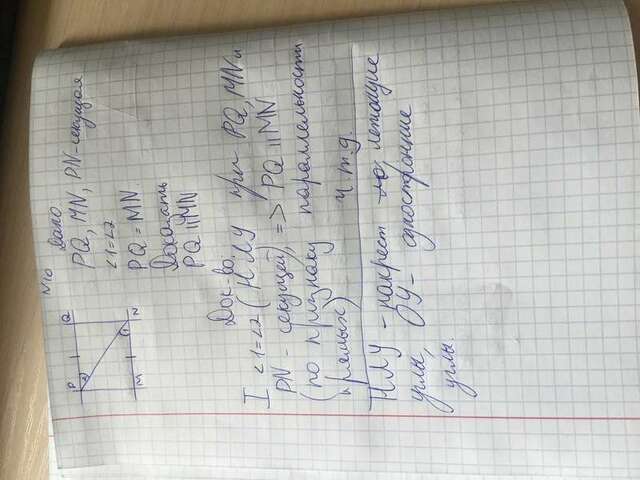 N10
Дано
PQ, MN, PN-секущая
∠1=∠2
PQ = MN
Доказать
PQ || MN
P Q
2
1
M N
Док-во.
I ∠1=∠2 (НЛУ при PQ, MN и
PN - секущей) => PQ || MN
(по признаку параллельности
прямых) ч.т.д.
НЛУ - накрест лежащие
углы, ОУ- односторонние
углы.